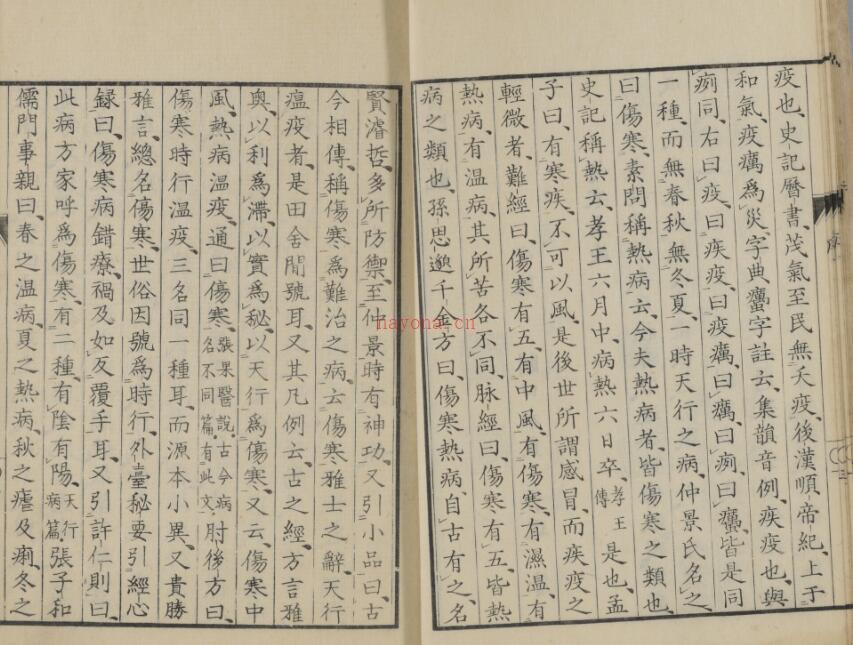 疫也、史記曆書、茂氣至民無夭疫、後漢順帝紀、上于
和氣、疫癘為災、字典蠱字註云、集韻音例、疾疫也、與
痢同、右曰疫、曰疾疫、曰疫癘、曰癘、曰痢、曰蠱、皆是同
一種、而無春秋、無冬夏、一時天行之病、仲景氏名之
曰傷寒、素問稱熱病云、今夫熱病者、皆傷寒之類也、
史記稱熱云、孝王六月中、病熱六日卒、孝王傳是也、孟
子曰、有寒疾、不可以風、是後世所謂感冒、而疾疫之
輕微者、難經曰、傷寒有五、有中風、有傷寒、有濕温、有
熱病、有温病、其所苦各不同、脉經曰、傷寒有五、皆熱
病之類也、孫思邈千金方曰、傷寒熱病、自古有之、名
賢濬哲、多所防禦、至仲景時有神功、又引小品曰、古
今相傳、稱傷寒為難治之病、云傷寒雅士之辭、天行
瘟疫者、是田舍間號耳、又其凡例云、古之經方言雅
奧、以利為滯、以實為秘、以天行為傷寒、又云、傷寒中
風、熱病温疫、通曰傷寒、張杲醫說、古今病名不同篇有此文、肘後方曰、
傷寒時行温疫、三名同一種耳、而源本小異、又貴勝
雅言、總名傷寒、世俗因號為時行、外臺秘要引經心
録曰、傷寒病錯療、禍及如反覆手耳、又引許仁則曰、
此病方家呼為傷寒、有二種、有陰有陽、天行病篇、張子和
儒門事親曰、春之温病、夏之熱病、秋之瘧及痢、冬之
序
nayona.cn